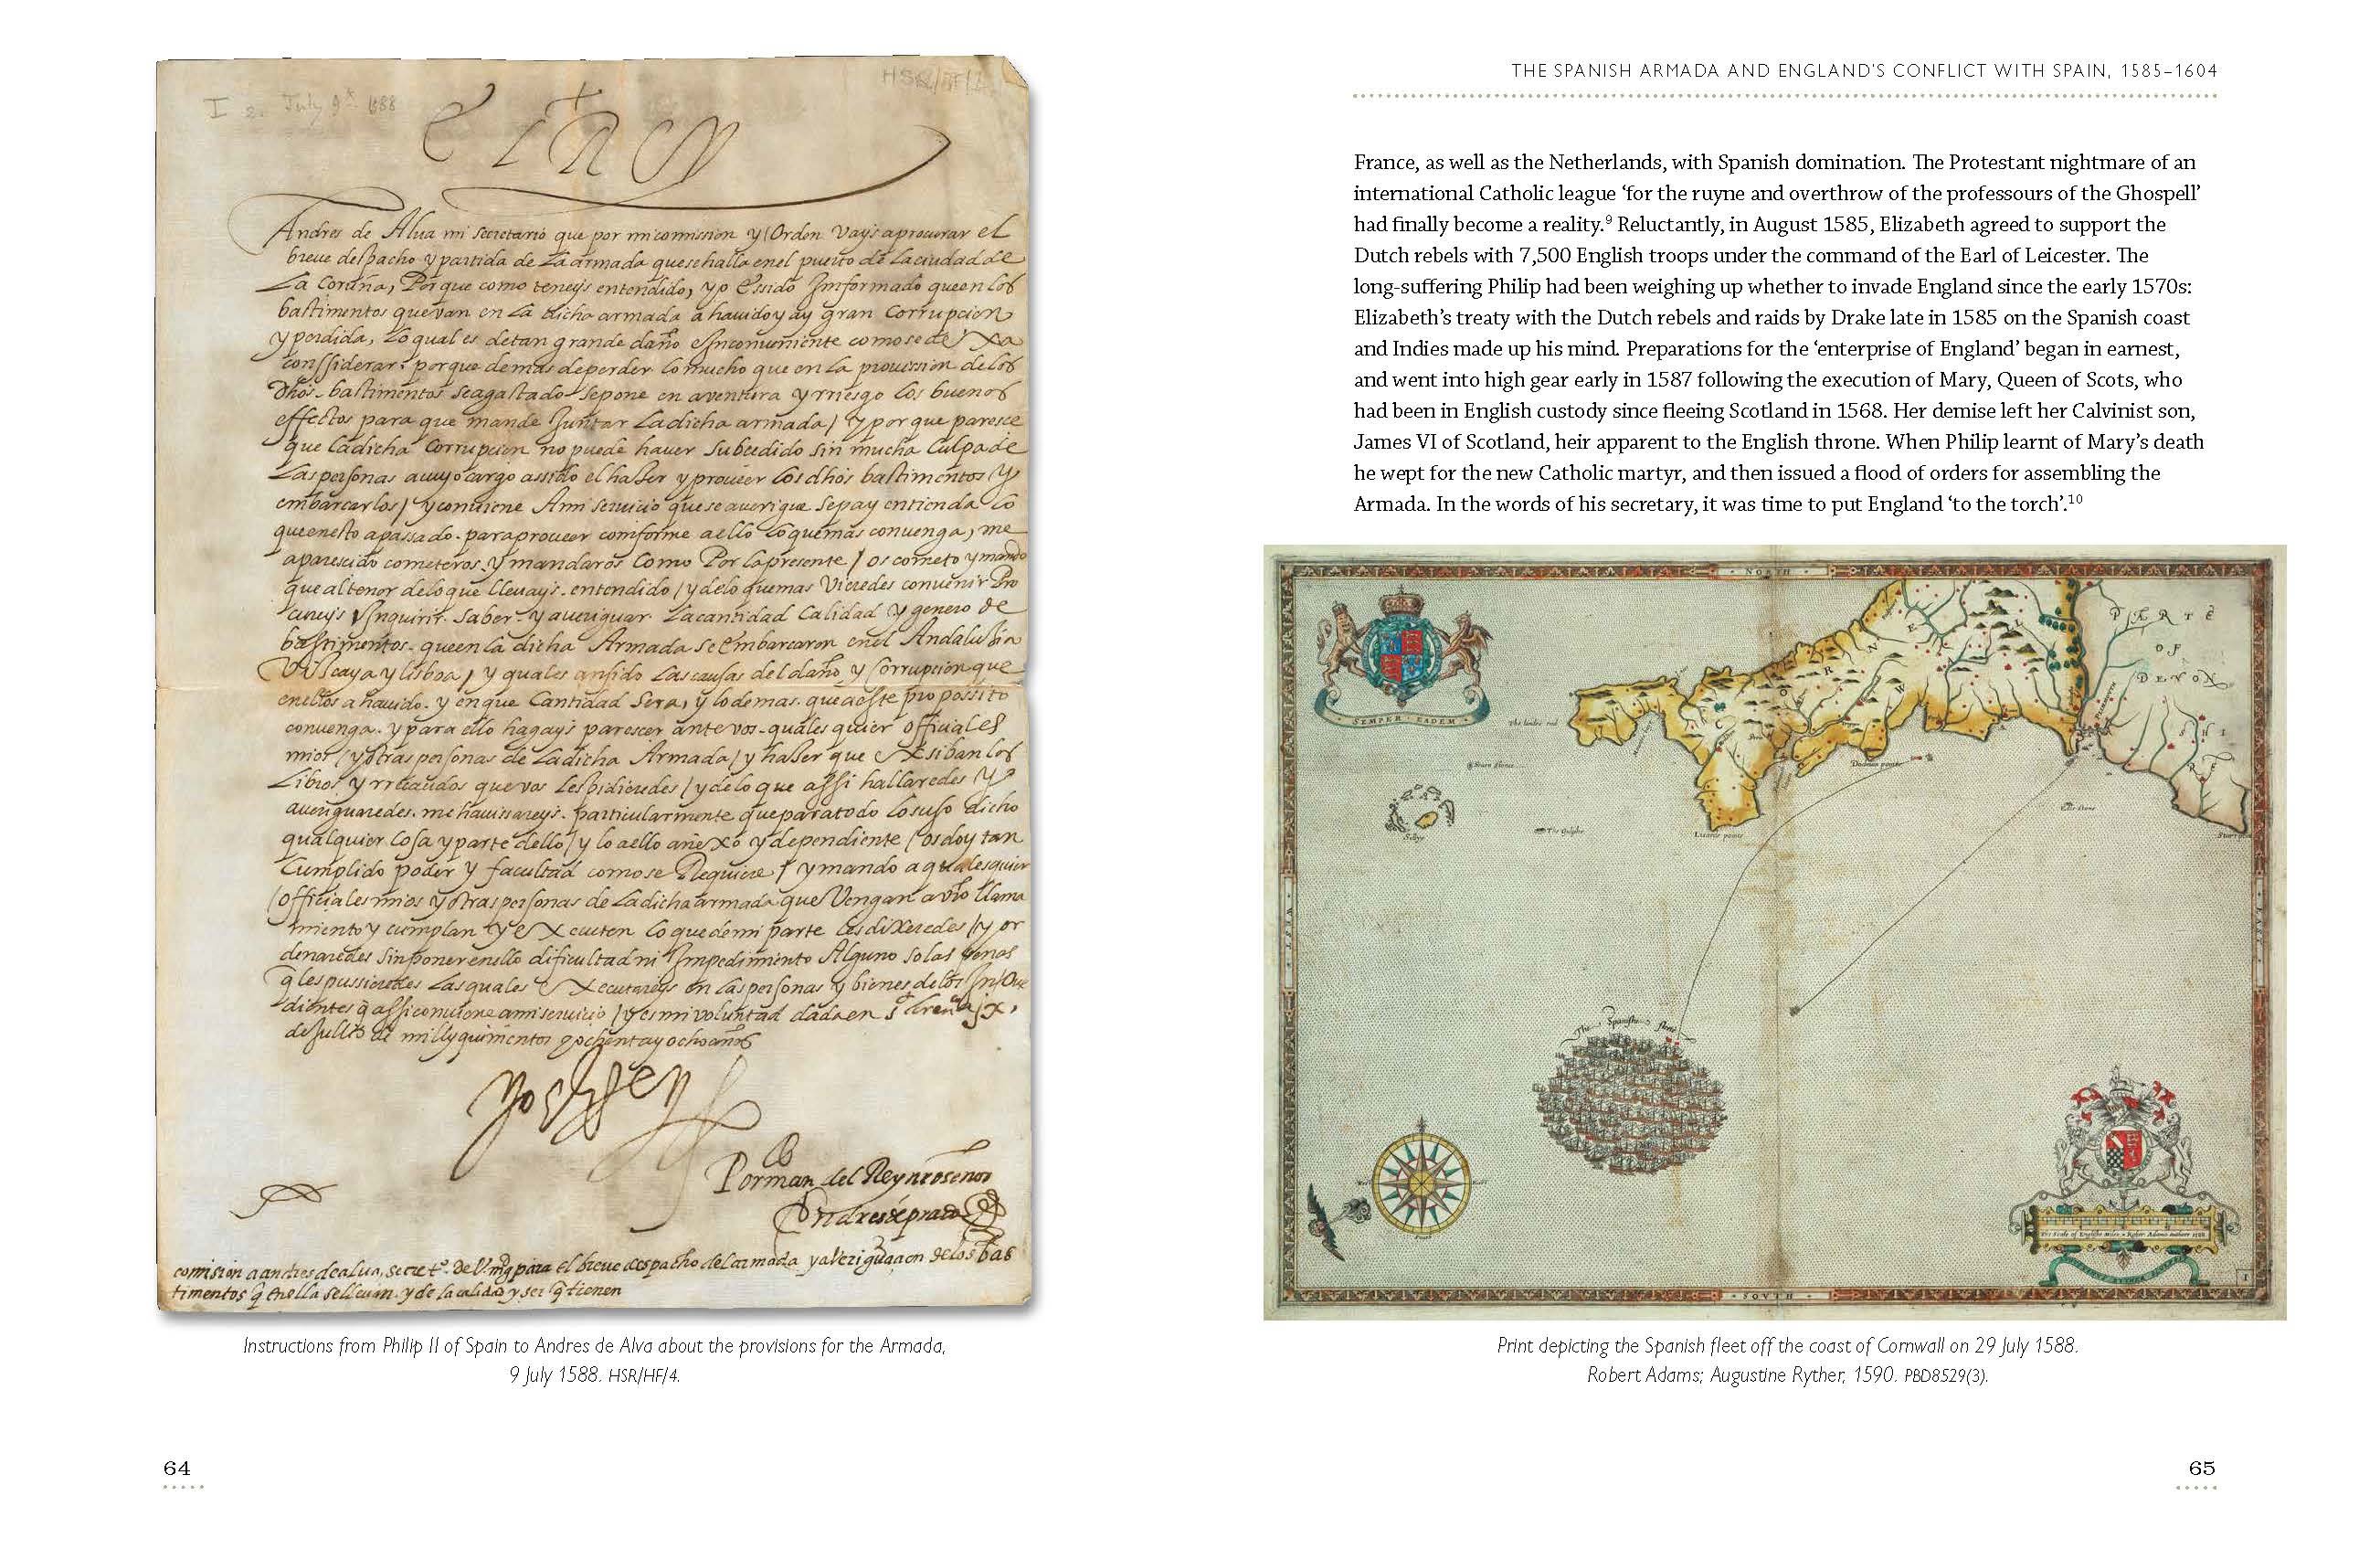 HSR/HF/4
I 2. July 9th 1588
El Rey
Andres de Alua mi secretario que por mi comission y Orden Vays aprocurar el
breue despacho y partida de La armada que se halla en el puerto de La ciudad de
La Coruña, Porque como teneys entendido, yo he sido Imformado que en los
bastimentos que van en La dicha armada a hauido y ay gran Corrupcion
y perdida, Lo qual es de tan grande daño e Inconuiniente como se dexa
conssiderar: porque demas de perder Lo mucho que en La prouission de los
dhos. bastimentos se a gastado se pone en aventura y rriesgo Los buenos
effectos para que mande Juntar La dicha armada / y porque paresce
que La dicha Corrupcion no puede hauer Subcedido sin mucha Culpa de
Las personas a cuyo cargo a sido el haser y proueer Los dhos bastimentos y
embarcarlos / y conuiene Ami seruicio que se auerigue sepa y entienda Lo
que en esto a passado. para proueer comforme a ello Lo que mas convenga, me
a parescido cometeros. y mandaros Como Por La presente / os cometo y mando
que al tenor de lo que lleuays. entendido / y de lo que mas Vieredes convenir Pro
cureys Ynquirir. Saber. y aueriguar La cantidad Calidad y genero de
bastimentos. que en La dicha Armada se Embarcaron en el Andaluzia
Viscaya y Lisboa, y quales an sido Las causas del daño y Corrupcion que
en ellos a hauido. y en que Cantidad Sera, y lo demas. que a este propossito
convenga. y para ello hagays parescer ante vos. quales quier officiales
mios / y otras personas de La dicha Armada / y haser que Exsiban los
Libros y rrecaudos que vos Les pidieredes / y de lo que assi hallaredes y
aueriguaredes. me hauisareys. particularmente que para todo Lo suso dicho
qualquier Cosa y parte dello / y lo a ello anexo y dependiente / os doy tan
Cumplido poder y facultad como se Requiere / y mando a qualesquier
officiales mios y otras personas de La dicha armada que Vengan a vro llama
miento y cumplan y Executen Lo que de mi parte Les dixeredes / y or
denaredes sin poner en ello dificultad ni Impedimiento Alguno so las penas
q les pussieredes Las quales Executareys en Las personas y bienes de los Inobe
dientes q assi conuiene a mi seruicio / y es mi voluntad dada en
de Jullio de mill y quinientos y ochenta y ocho años
Yo el Rey
Por man.do del Rey nro señor
Andres de prada
comision a andres de alua, secret.o de V. mg para el breue despacho del armada y aberiguaçon de los bas
timentos q en ella se lleuan. y de la calidad y ser q tienen
Instructions from Philip II of Spain to Andres de Alva about the provisions for the Armada,
9 July 1588. HSR/HF/4.
64
THE SPANISH ARMADA AND ENGLAND'S CONFLICT WITH SPAIN, 1585–1604
France, as well as the Netherlands, with Spanish domination. The Protestant nightmare of an
international Catholic league ‘for the ruyne and overthrow of the professours of the Ghospell’
had finally become a reality.⁹ Reluctantly, in August 1585, Elizabeth agreed to support the
Dutch rebels with 7,500 English troops under the command of the Earl of Leicester. The
long-suffering Philip had been weighing up whether to invade England since the early 1570s:
Elizabeth’s treaty with the Dutch rebels and raids by Drake late in 1585 on the Spanish coast
and Indies made up his mind. Preparations for the ‘enterprise of England’ began in earnest,
and went into high gear early in 1587 following the execution of Mary, Queen of Scots, who
had been in English custody since fleeing Scotland in 1568. Her demise left her Calvinist son,
James VI of Scotland, heir apparent to the English throne. When Philip learnt of Mary’s death
he wept for the new Catholic martyr, and then issued a flood of orders for assembling the
Armada. In the words of his secretary, it was time to put England ‘to the torch’.¹⁰
NORTH
PARTE
OF
DENON
SHI
RE
CORNWALL
SEMPER EADEM
Silly
The Gulphe
Lizarde pointe
Dodman pointe
The Spanishe fleete
The Scale of Englishe Miles Robert Adams authore 1588
AUGUSTINE RYTHER
SOVTH
1
Print depicting the Spanish fleet off the coast of Cornwall on 29 July 1588.
Robert Adams; Augustine Ryther, 1590. PBD8529(3).
65